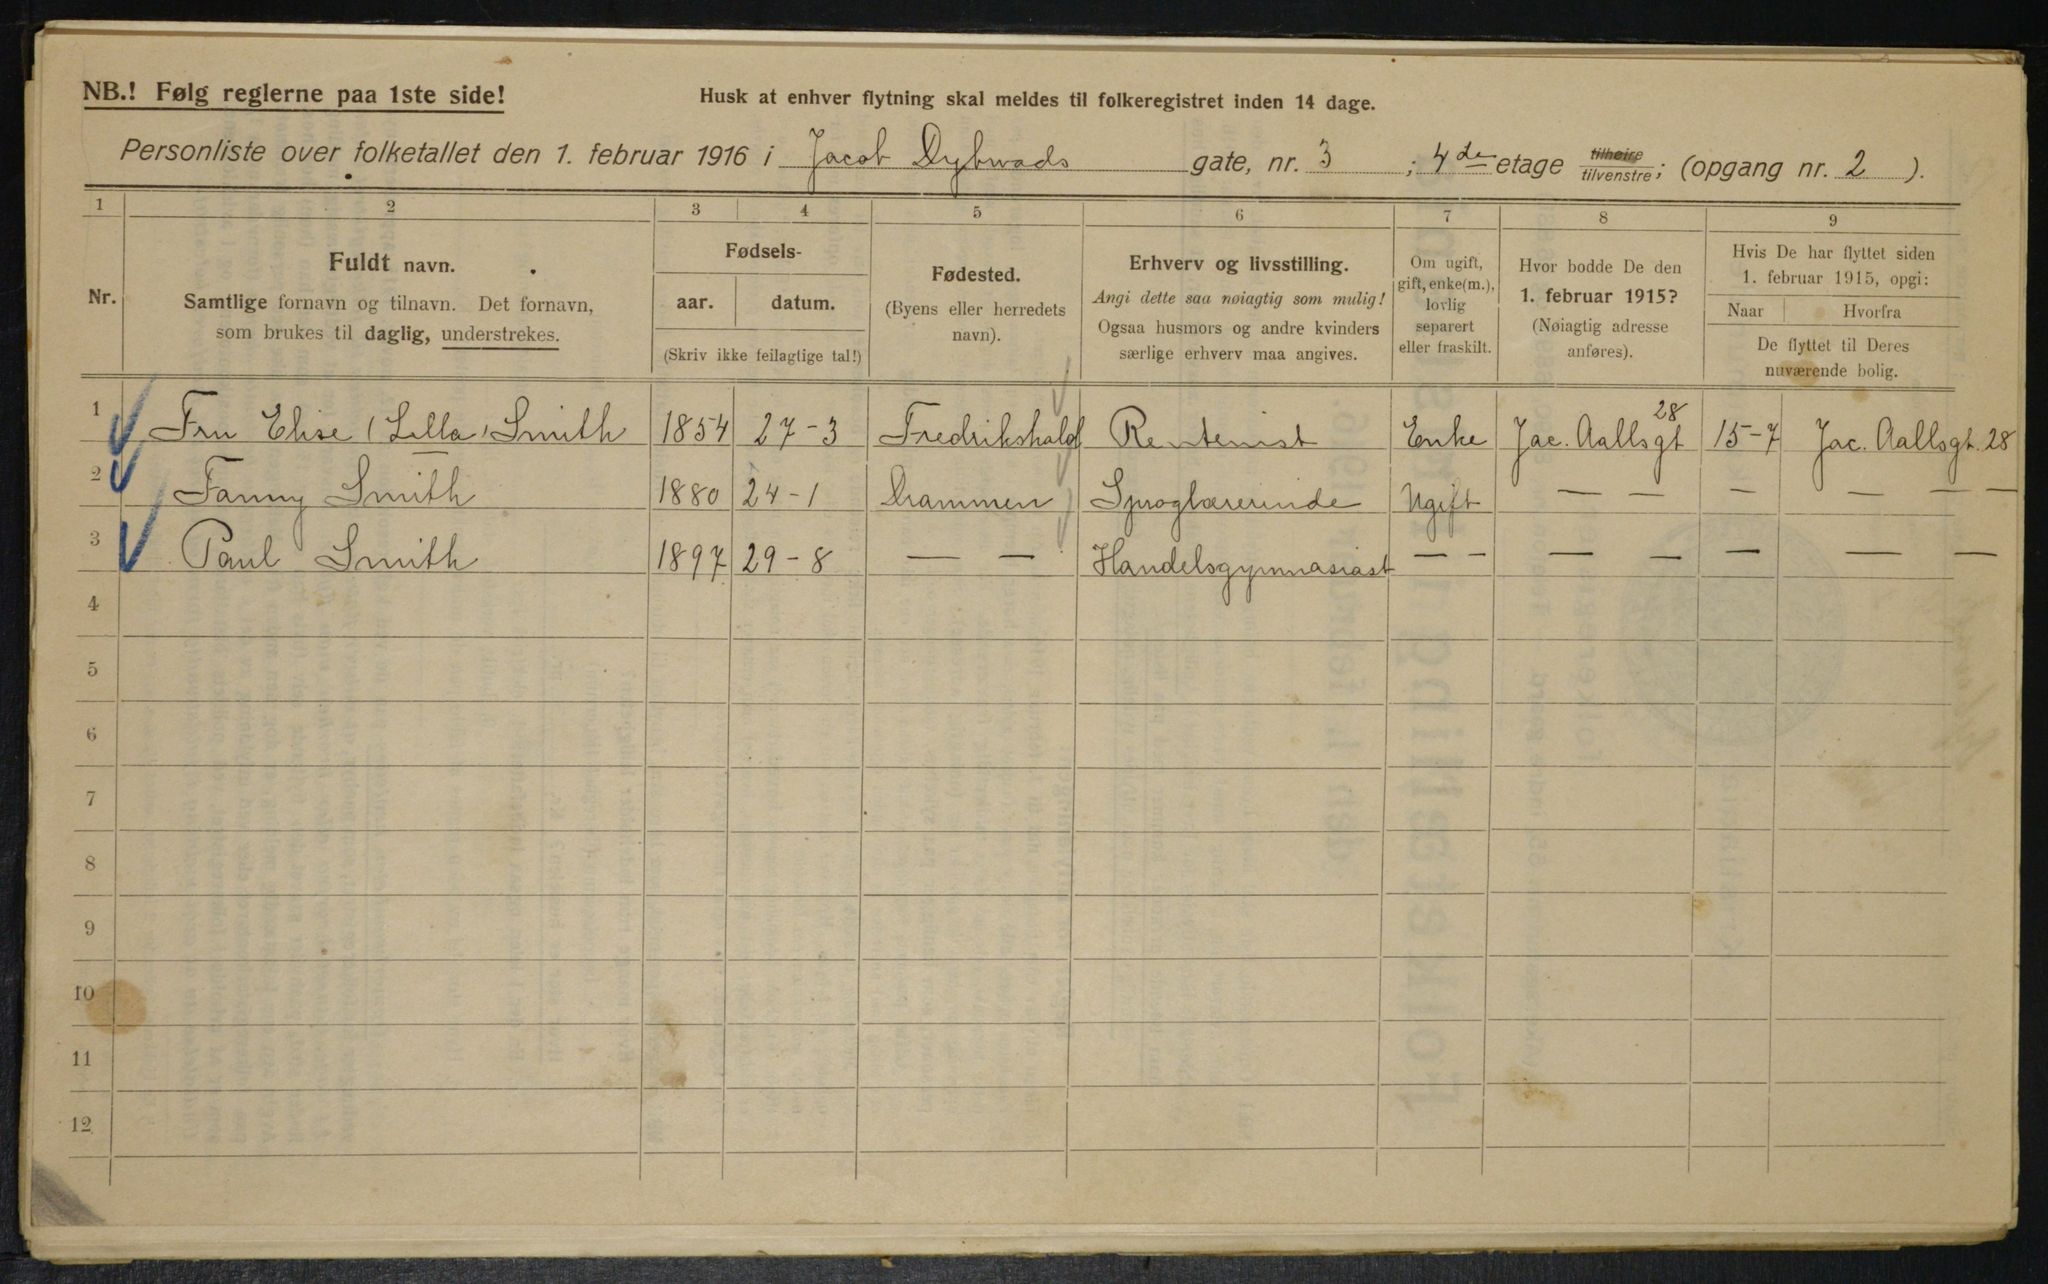 NB.! Følg reglerne paa 1ste side!
Husk at enhver flytning skal meldes til folkeregistret inden 14 dage.
Personliste over folketallet den 1. februar 1916 i Jacob Dybwads gate, nr. 3 ; 4de etage tilhøire tilvenstre ; (opgang nr. 2 ).
1 2 3 4 5 6 7 8 9
Nr.
Fuldt navn.
Samtlige fornavn og tilnavn. Det fornavn,
som brukes til daglig, understrekes.
Fødsels-
aar. datum.
(Skriv ikke feilagtige tal!)
Fødested.
(Byens eller herredets
navn).
Erhverv og livsstilling.
Angi dette saa nøiagtig som mulig!
Ogsaa husmors og andre kvinders
særlige erhverv maa angives.
Om ugift,
gift, enke(m.),
lovlig
separert
eller fraskilt.
Hvor bodde De den
1. februar 1915?
(Nøiagtig adresse
anføres).
Hvis De har flyttet siden
1. februar 1915, opgi:
Naar Hvorfra
De flyttet til Deres
nuværende bolig.
1 Fru Elise (Lilla) Smith 1854 27-3 Fredrikshald Rentenist Enke Jac. Aallsgt 28 15-7 Jac. Aallsgt. 28
2 Fanny Smith 1880 24-1 Drammen Sproglærerinde Ugift — — — — — —
3 Paul Smith 1897 29-8 — — Handelsgymnasiast — — — — — — —
4
5
6
7
8
9
10
11
12